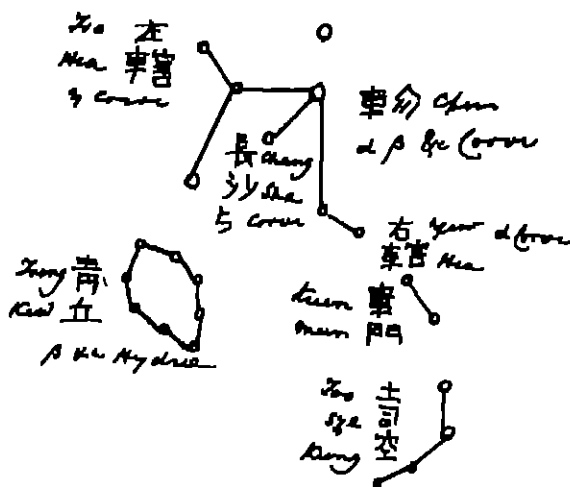 Tso 左
Hea 轄
η Corvi
軫 Chin
α β &c Corvi
長 Chang
沙 Sha
ζ Corvi
右 Yew α Corvi
轄 Hea
Tsing 青
Kew 丘
β &c Hydrae
Keun 軍
mun 門
Too 土
Sze 司
Kung 空